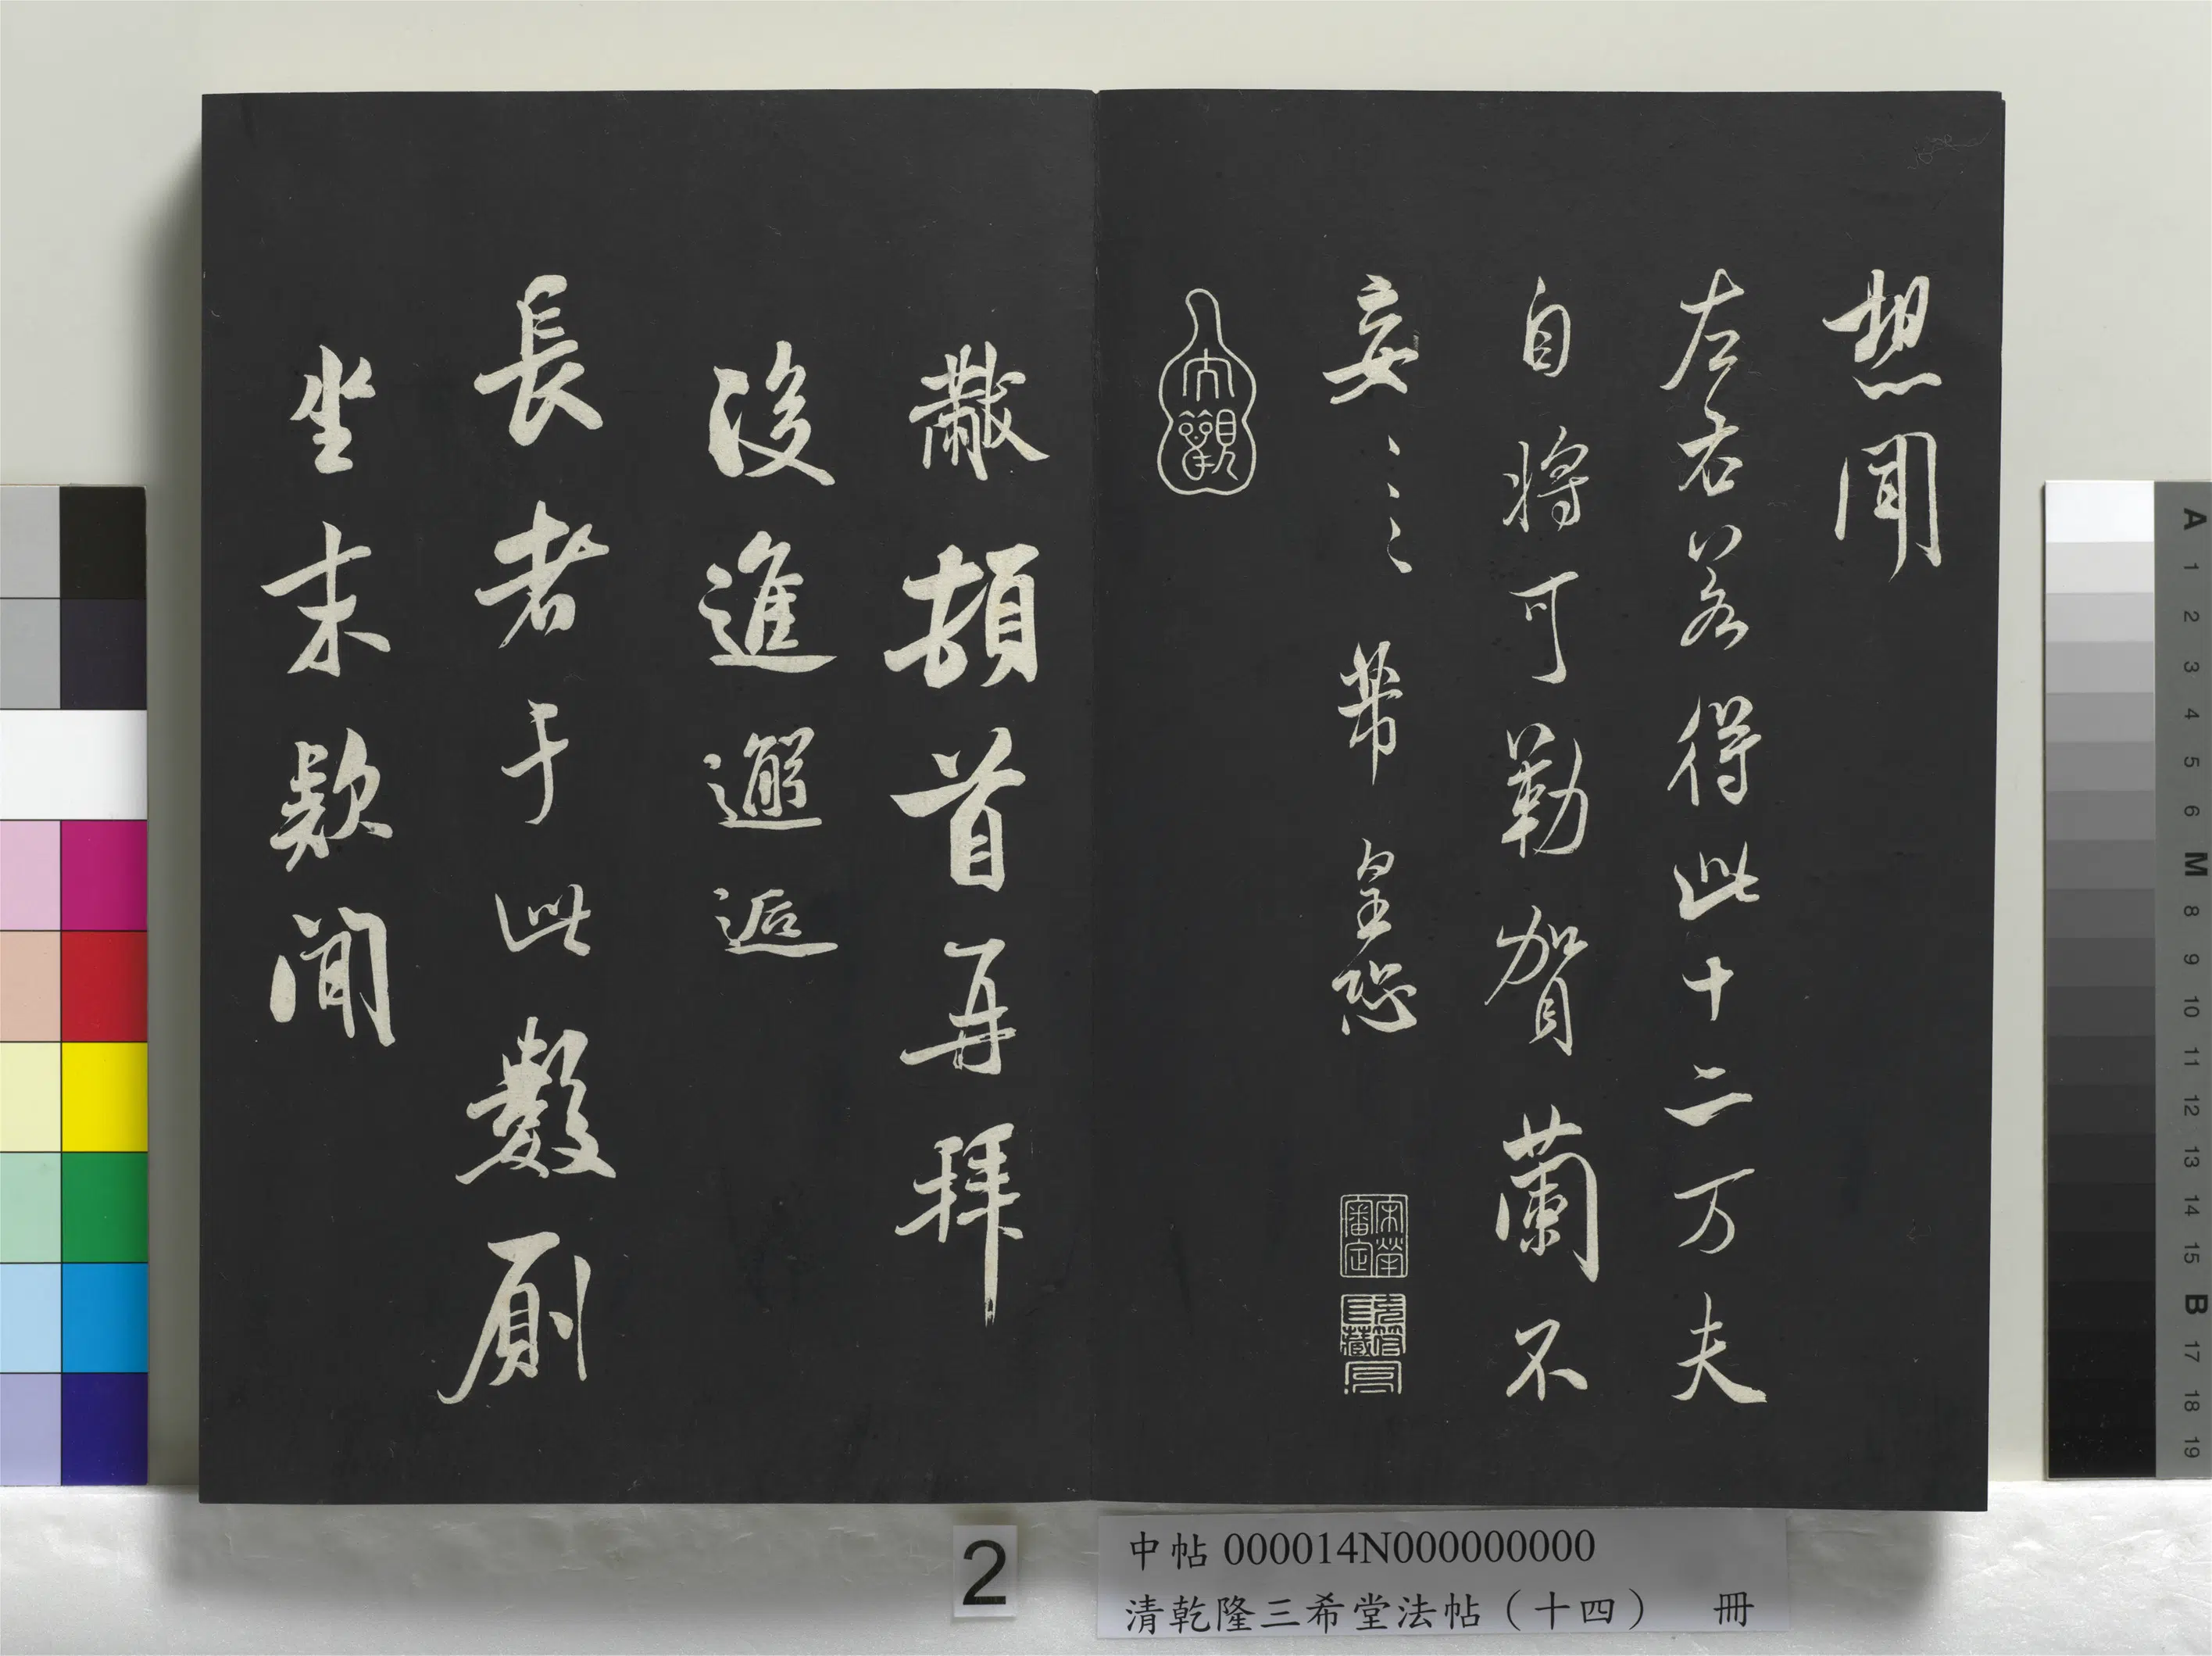 想聞
左右若得此十二万夫
自將可勒賀蘭不
妄〻〻 芾 皇恐
大觀
宋犖審定
黻頓首再拜
後進邂逅
長者于此數廁
坐末款聞
2
中帖 000014N000000000
清乾隆三希堂法帖（十四） 冊
A 1 2 3 4 5 6 M 8 9 10 11 12 13 14 15 B 17 18 19